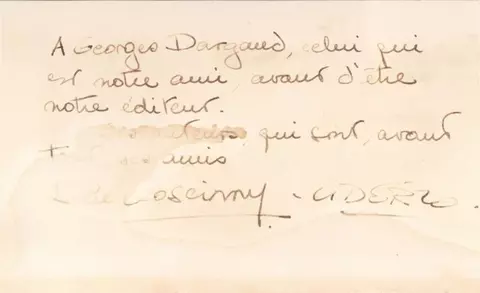 A Georges Dargaud, celui qui
est notre ami, avant d'être
notre éditeur.
qui sont, avant
amis
Goscinny - UDERZO.